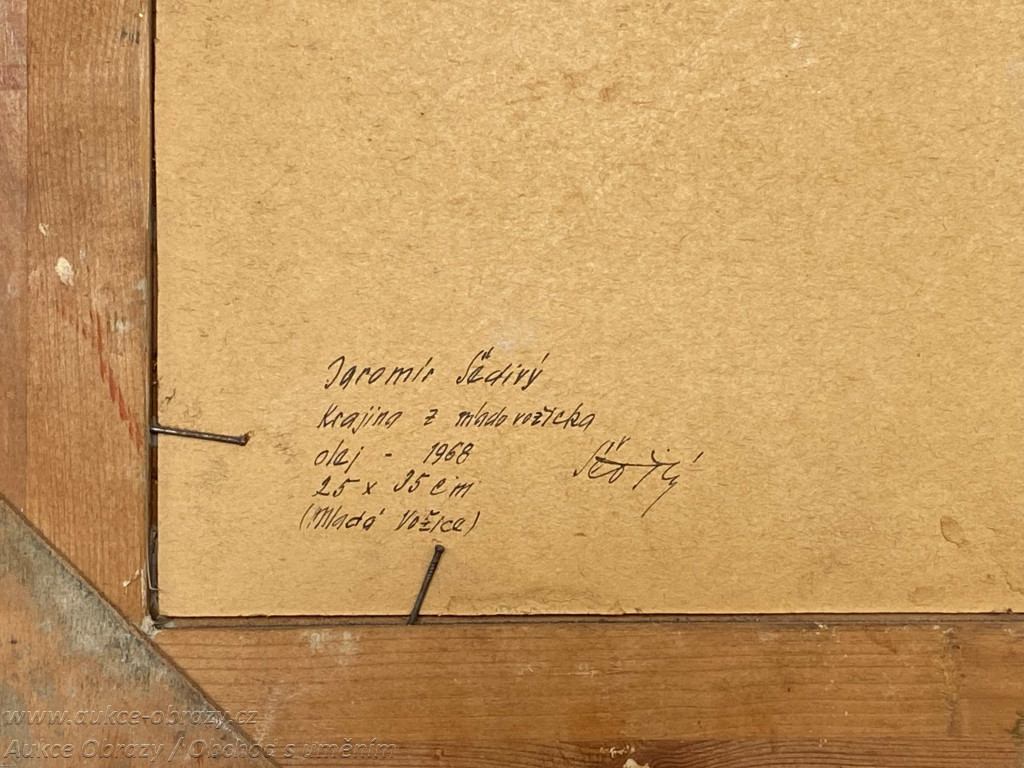 Jaromír Šedivý
Krajina z mladovožicka
olej - 1968
25 x 35 cm
Šedivý
(Mladá Vožice)
www.aukce-obrazy.cz
Aukce Obrazy / Obchod s uměním